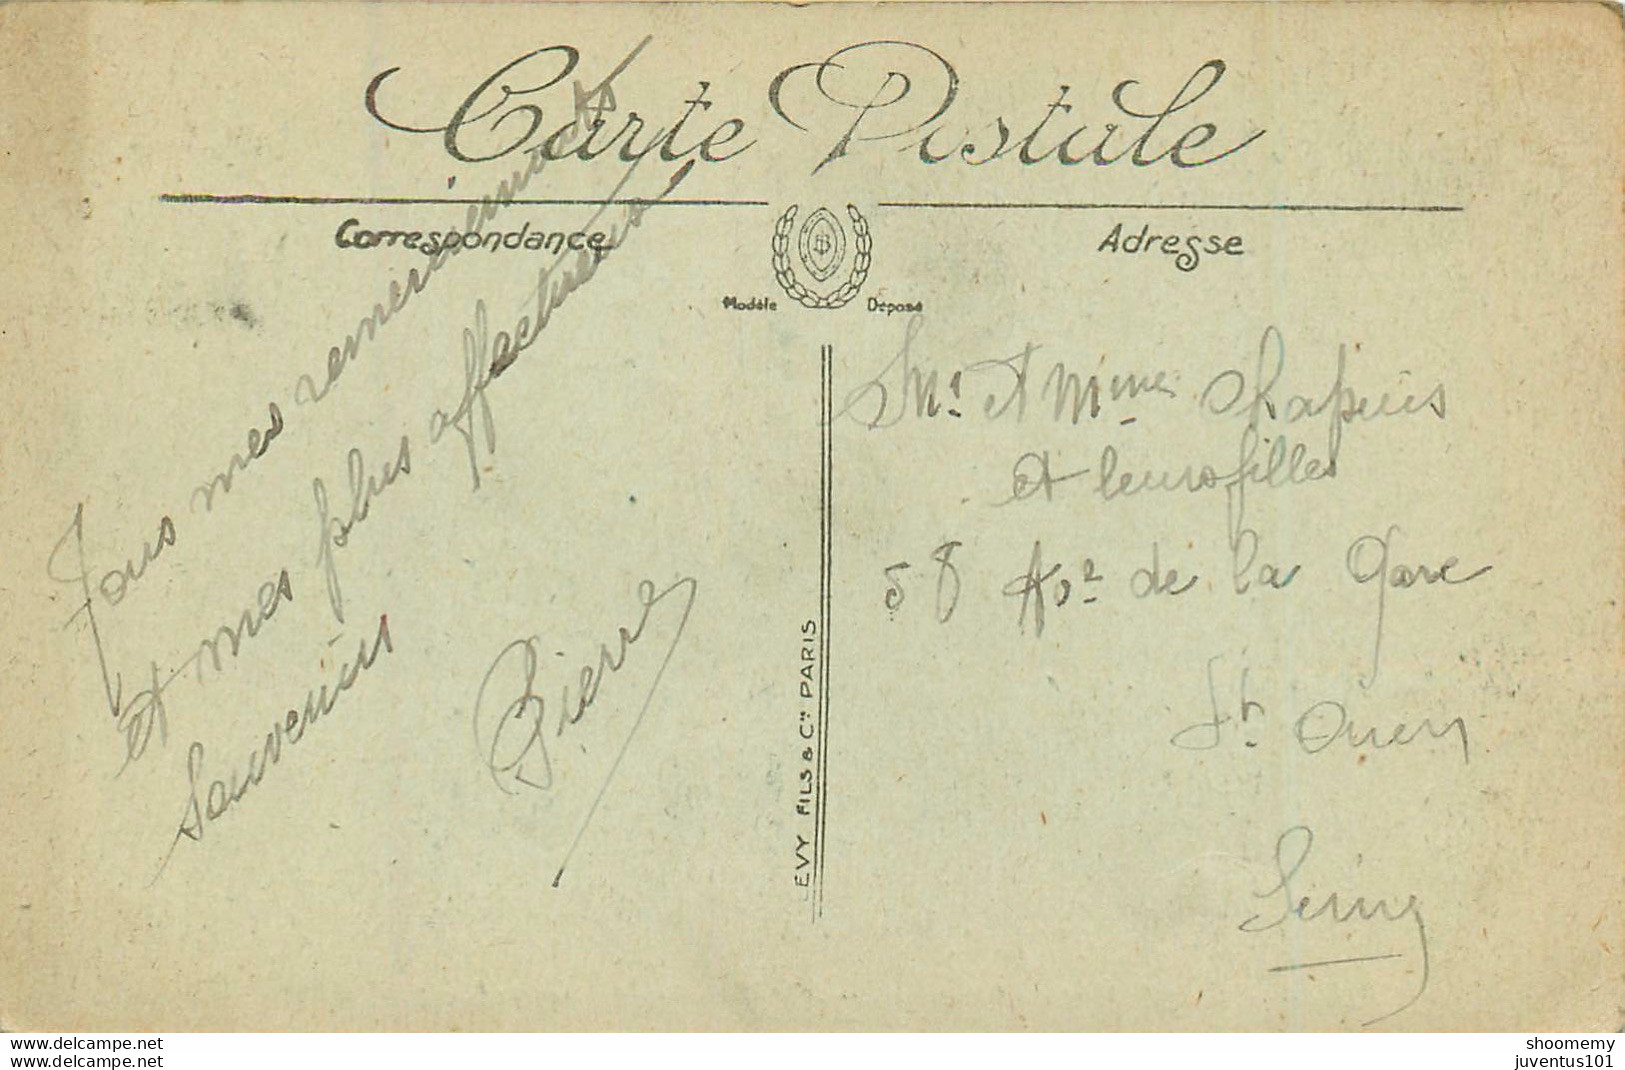 Carte Postale
Correspondance
Adresse
Modèle Déposé
Tous mes remerciements
et mes plus affectueux
souvenirs
Pierre
LEVY FILS & Cie PARIS
Mr et Mme Chapuis
et leurs filles
58 Ave de la Gare
St Ouen
Seine
www.delcampe.net
www.delcampe.net
shoomemy
juventus101